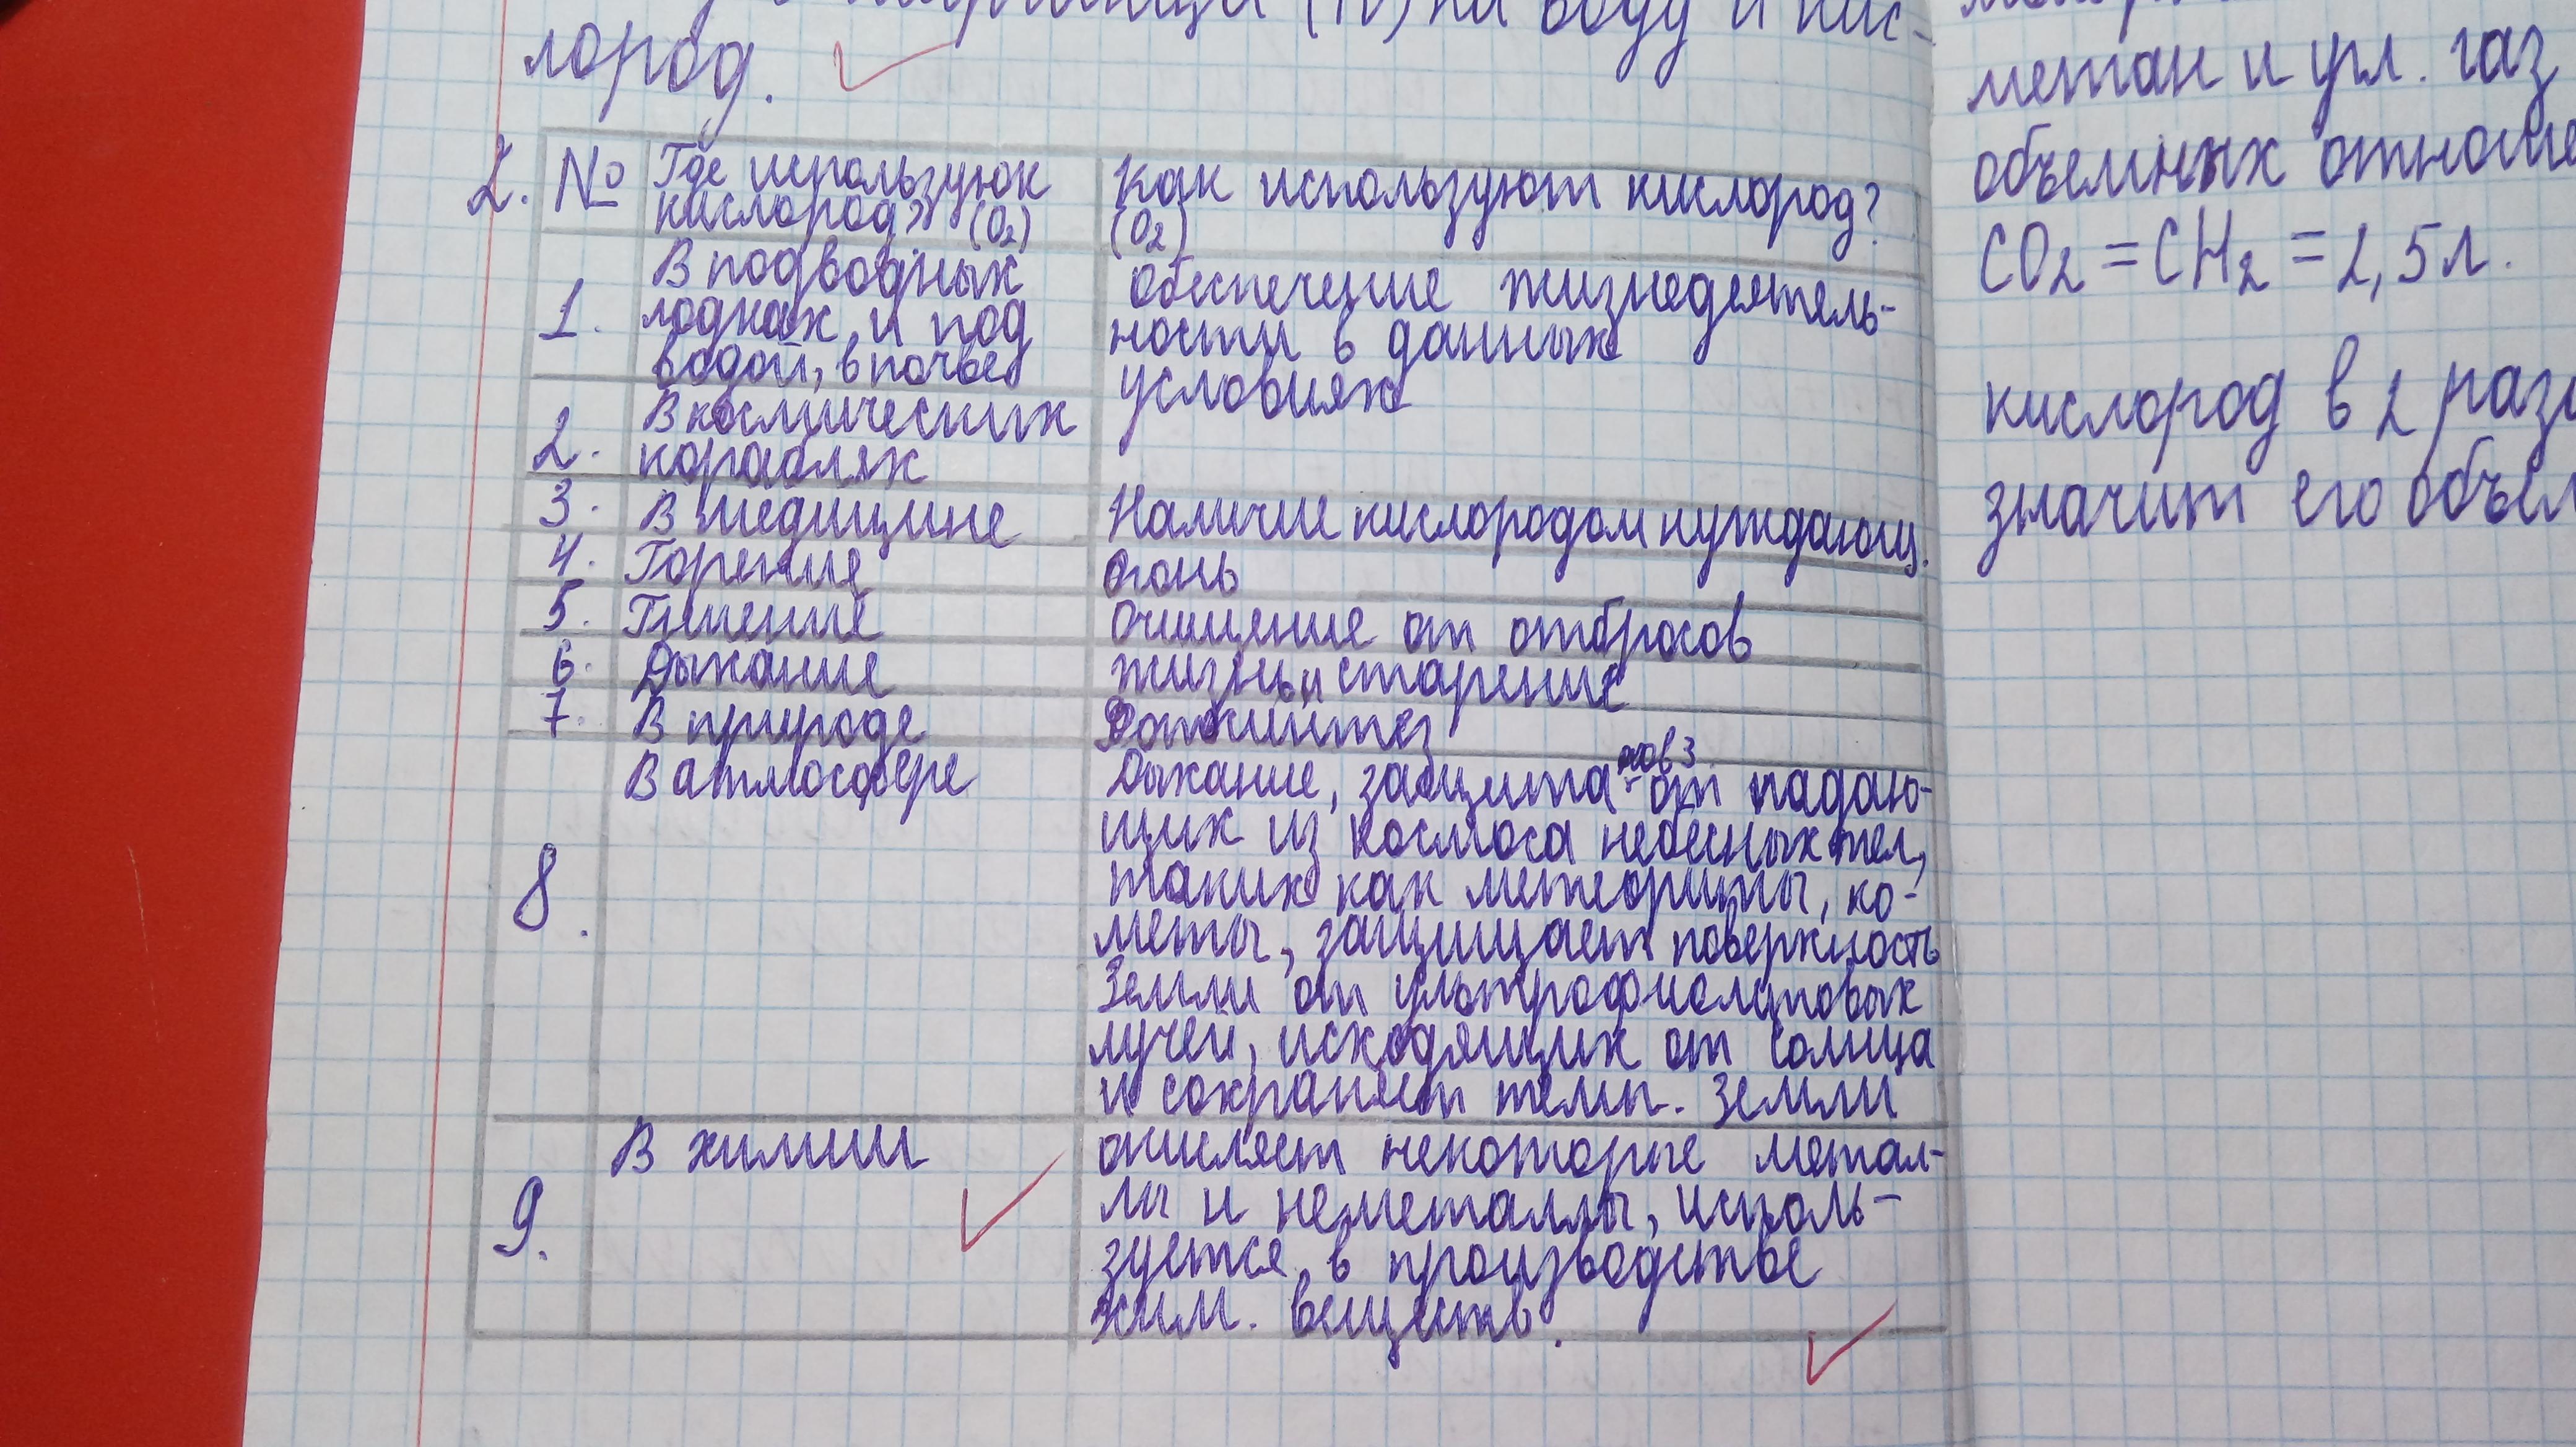 (IV) на воду и кис-
лород.
2. № Где используюк Как используют кислород?
кислород? (O₂) (O₂)
В подводных
1. лодках, и под обеспечение жизнедеятель-
водой, в почве ности в данных
условиях
В космических
2. кораблях
3. В медицине Наличие кислородом нуждающ.
4. Горение Огонь
5. Гниение Очищение от отбросов
6. Дыхание жизнь и старение
7. В природе Фотосинтез
8. В атмосфере Дыхание, защита от падаю-
щих из космоса небесных тел,
таких как метеориты, ко-
меты, защищает поверхность
Земли от ультрофиолетовых
лучей, исходящих от солнца
и сохраняет темп. Земли
9. В химии окисляет некоторые метал-
лы и неметаллы, исполь-
зуется в производстве
хим. веществ.
метан и угл. газ
объемных
CO₂ = CH₂ = 2,5 л.
кислород в 2
значит его